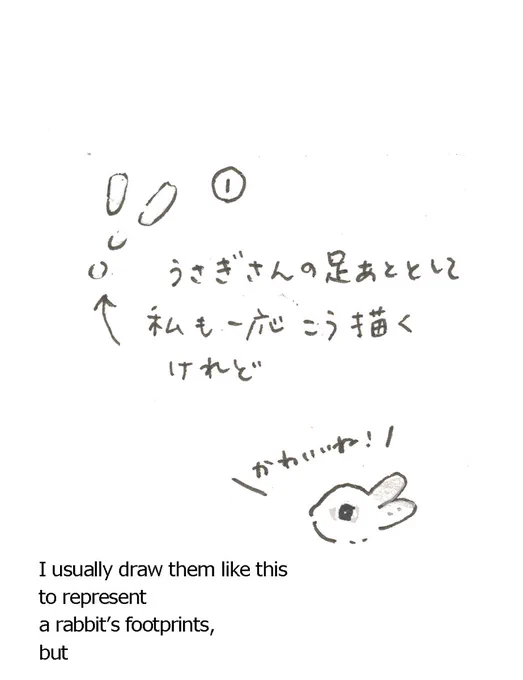 ①
うさぎさんの足あととして
私も一応こう描く
けれど
かわいいね!
I usually draw them like this
to represent
a rabbit’s footprints,
but